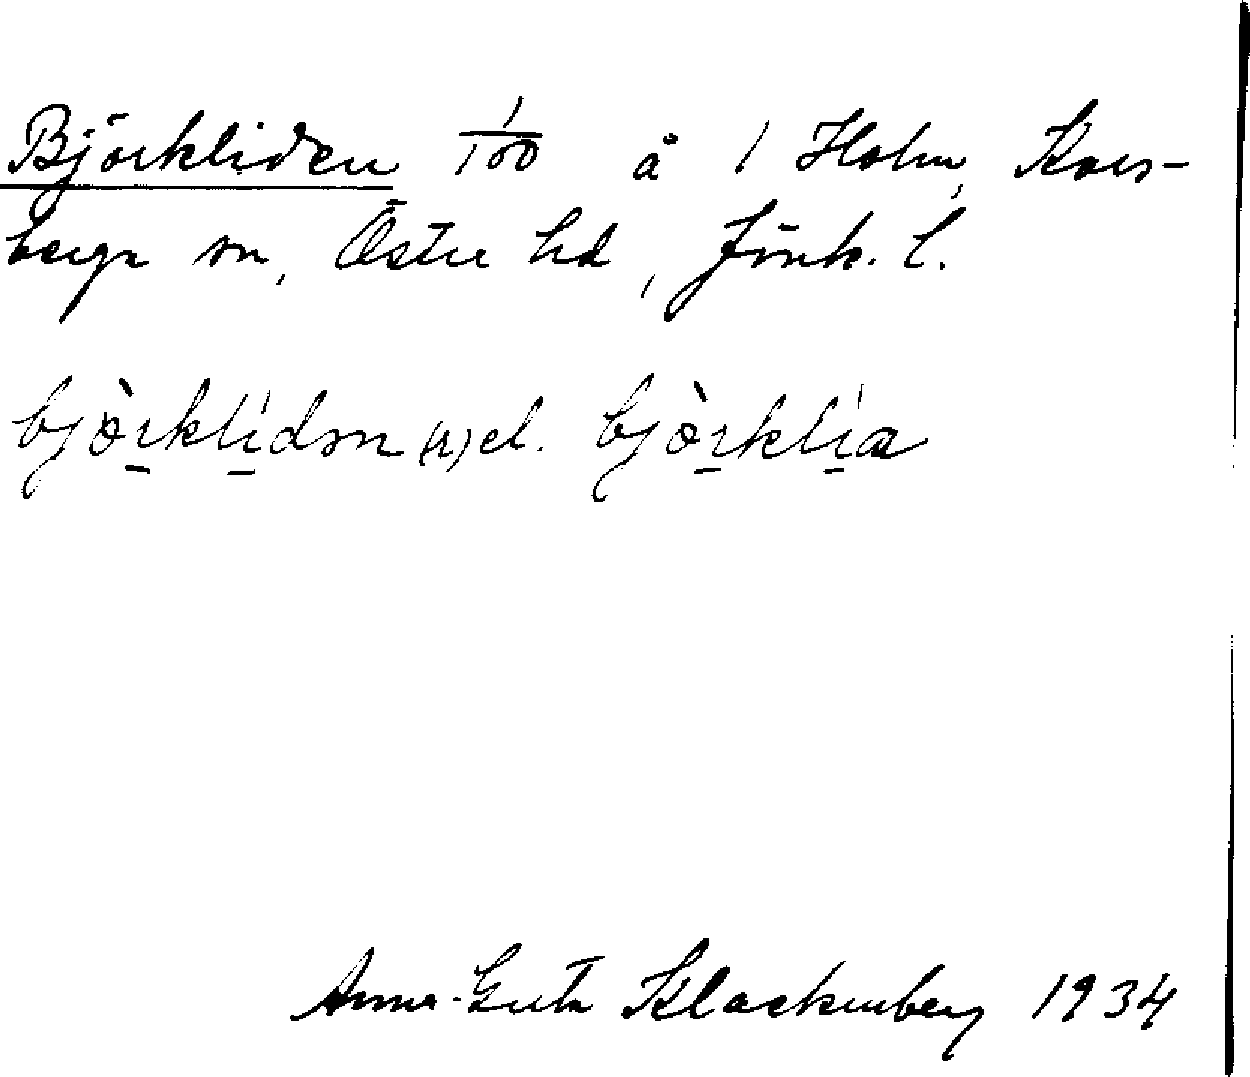 Björkliden 1/100 å 1 Holm, Kors-
berga sn, Östra hd, Jönk. l.
bjò̱rkli̱dən (n) el. bjò̱rkli̱a
Anna-Greta Klackenberg 1934